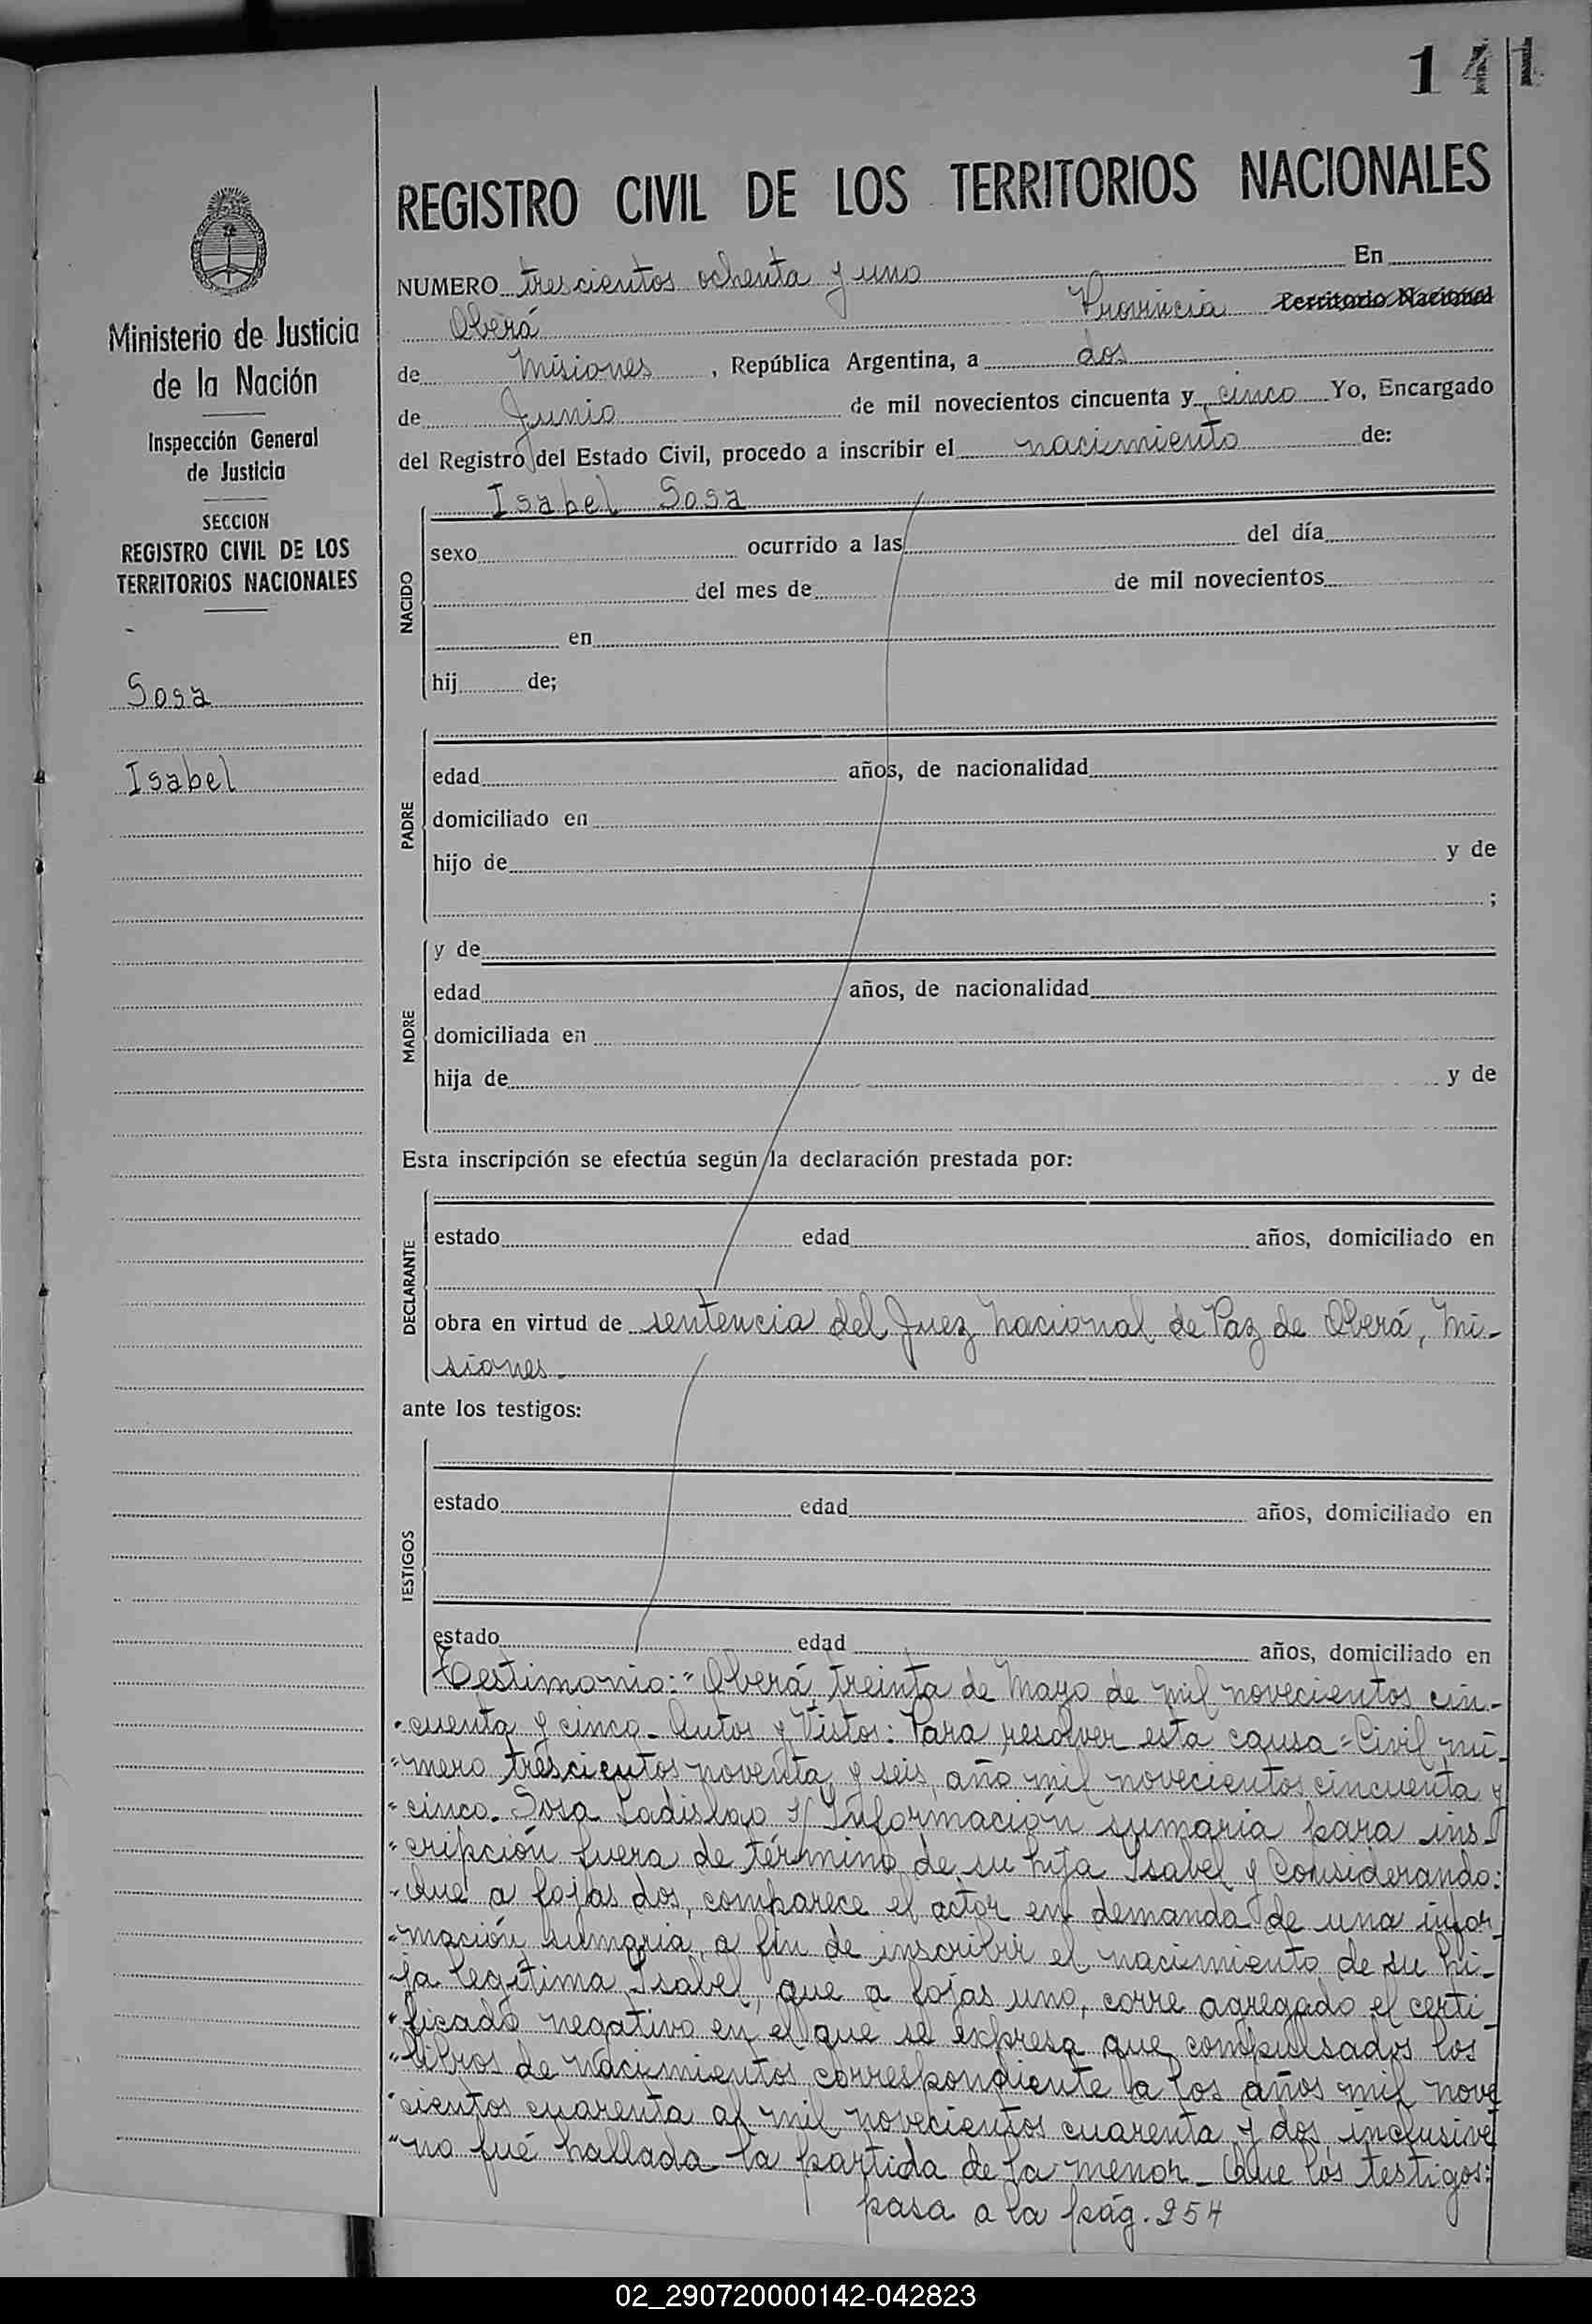 141
REGISTRO CIVIL DE LOS TERRITORIOS NACIONALES
Ministerio de Justicia
de la Nación
Inspección General
de Justicia
SECCION
REGISTRO CIVIL DE LOS
TERRITORIOS NACIONALES
Sosa
Isabel
NUMERO trescientos ochenta y uno En
Oberá Provincia Territorio Nacional
de Misiones, República Argentina, a dos
de Junio de mil novecientos cincuenta y cinco Yo, Encargado
del Registro del Estado Civil, procedo a inscribir el nacimiento de:
Isabel Sosa
NACIDO
sexo ocurrido a las del día
del mes de de mil novecientos
en
hij de;
PADRE
edad años, de nacionalidad
domiciliado en
hijo de y de
;
MADRE
y de
edad años, de nacionalidad
domiciliada en
hija de y de
Esta inscripción se efectúa según la declaración prestada por:
DECLARANTE
estado edad años, domiciliado en
obra en virtud de sentencia del Juez Nacional de Paz de Oberá, Mi-
siones.
ante los testigos:
TESTIGOS
estado edad años, domiciliado en
estado edad años, domiciliado en
Testimonio: "Oberá, treinta de Mayo de mil novecientos cin-
"cuenta y cinco.- Autos y Vistos: Para resolver esta causa=Civil nú-
"mero trescientos noventa y seis, año mil novecientos cincuenta y
"cinco. Sosa Ladislao s/ Información sumaria para ins-
"cripción fuera de término de su hija Isabel y Considerando:
"Que a fojas dos, comparece el actor en demanda de una infor-
"mación sumaria, a fin de inscribir el nacimiento de su hi-
"ja legítima Isabel, que a fojas uno, corre agregado el certi-
"ficado negativo en el que se expresa que compulsados los
"libros de nacimientos correspondiente a los años mil nove
"cientos cuarenta al mil novecientos cuarenta y dos inclusive
"no fué hallada la partida de la menor.- Que los testigos:
pasa a la pág. 254
02_290720000142-042823